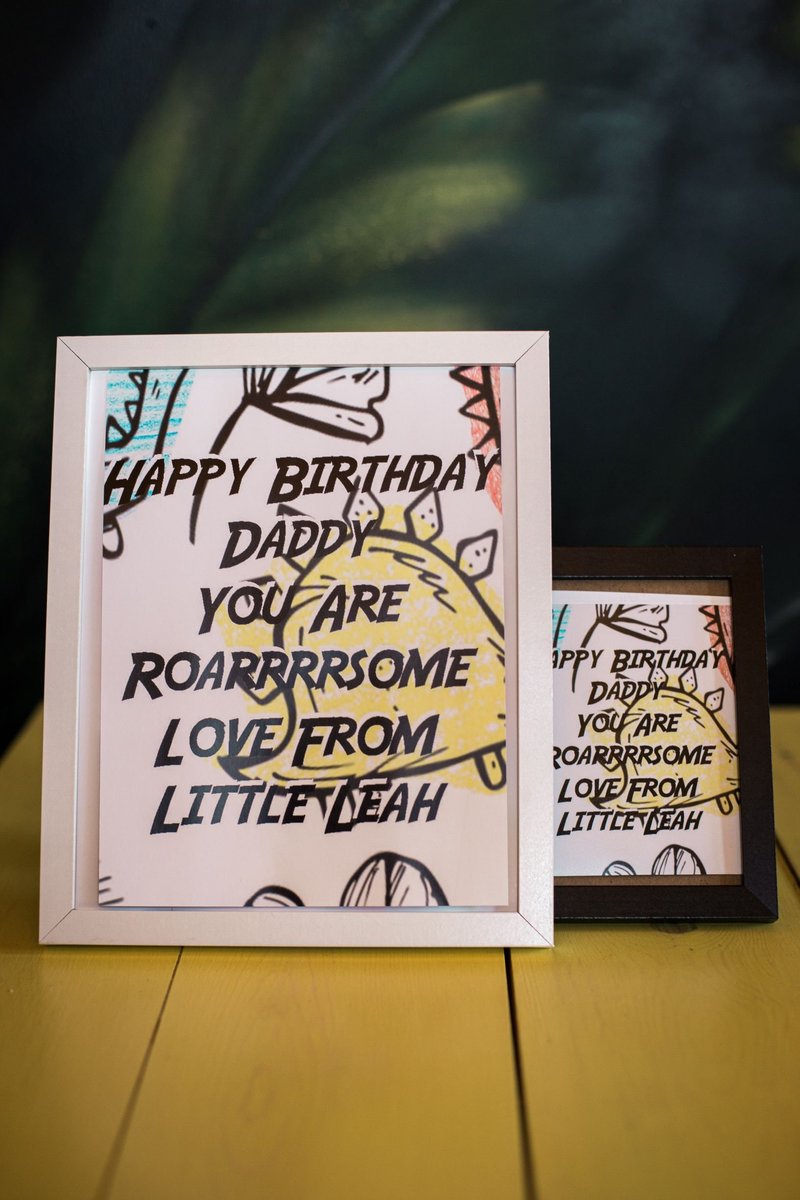 Happy Birthday
Daddy
you Are
Roarrrrsome
Love From
Little Leah
appy Birthday
Daddy
you Are
Roarrrrsome
Love From
Little Leah